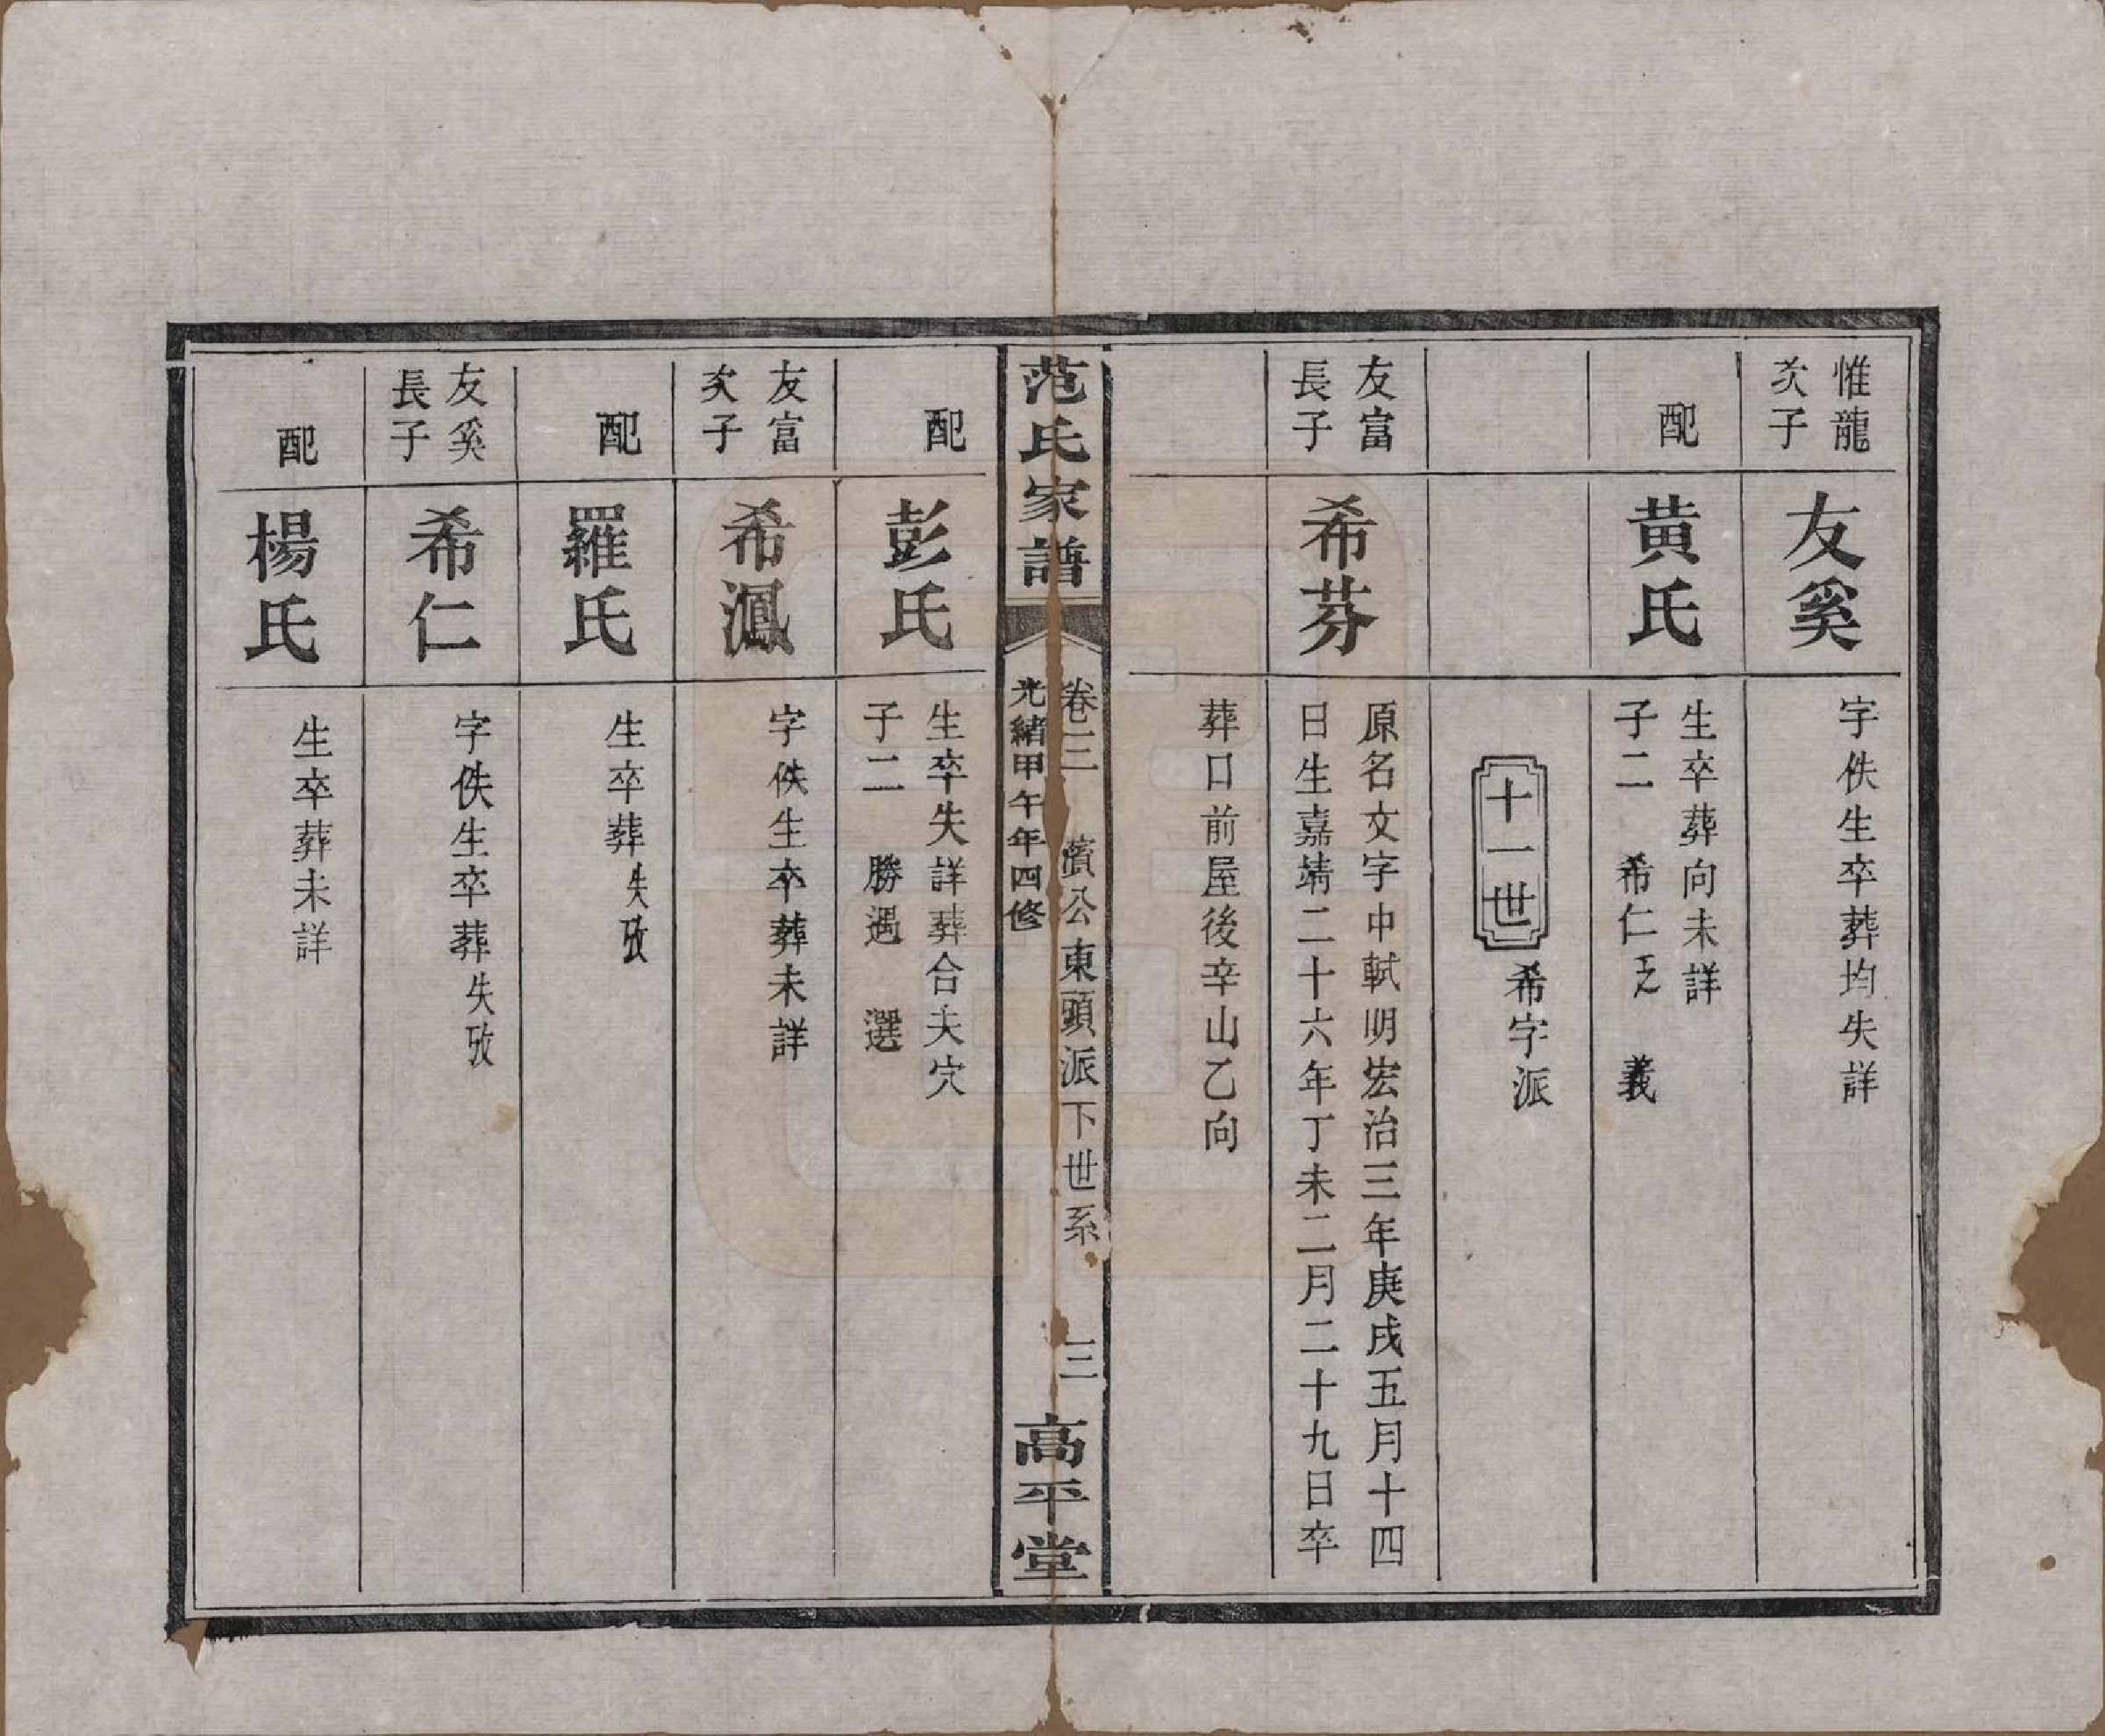 惟龍
次子
友奚
字佚生卒葬均失詳
配
黃氏
生卒葬向未詳
子二　希仁乏　義
十一世
希字派
友富
長子
希芬
原名文字中軾明宏治三年庚戌五月十四
日生嘉靖二十六年丁未二月二十九日卒
葬口前屋後辛山乙向
范氏家譜
卷三　濱公東頭派下世系　三
光緒甲午年四修
高平堂
配
彭氏
生卒失詳葬合夫穴
子二　勝遇　選
友富
次子
希鳳
字佚生卒葬未詳
配
羅氏
生卒葬失攷
友奚
長子
希仁
字佚生卒葬失攷
配
楊氏
生卒葬未詳